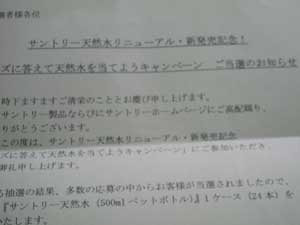 選者様各位
サントリー天然水リニューアル・新発売記念！
ズに答えて天然水を当てようキャンペーン ご当選のお知らせ
時下ますますご清栄のこととお慶び申し上げます。
サントリー製品ならびにサントリーホームページにご高配賜り、
りがとうございます。
この度は、サントリー天然水リニューアル・新発売記念
ズに答えて天然水を当てようキャンペーン」にご参加いただき、
御礼申し上げます。
抽選の結果、多数の応募の中からお客様が当選されましたので、
『サントリー天然水（500mlペットボトル）』1ケース（24本）を
いたします。